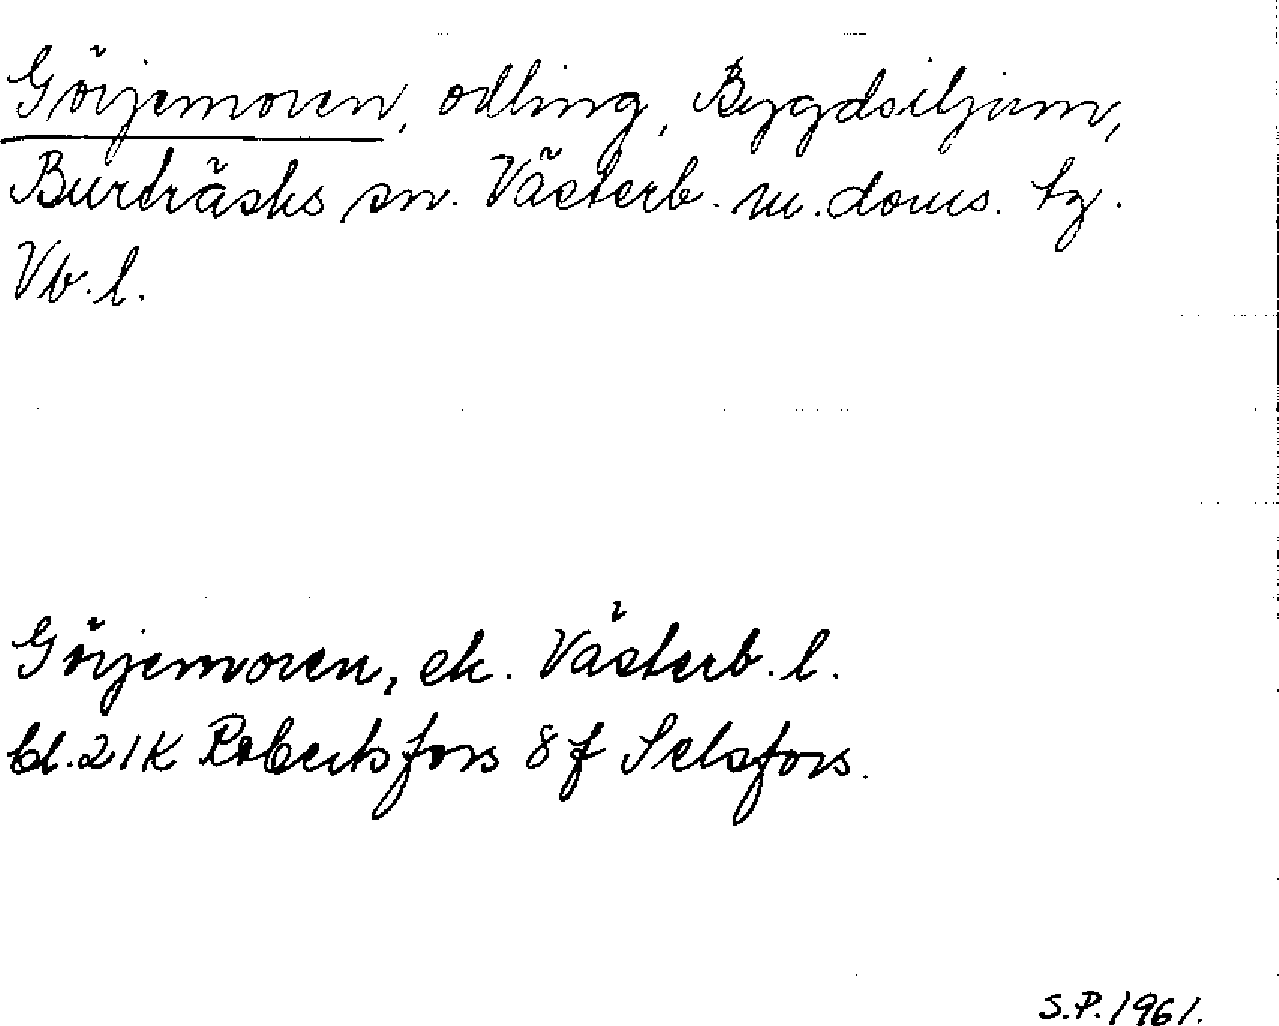 Görjemoren, odling, Bygdsiljum,
Burträsks sn. Västerb. m. doms. tg.
Vb. l.
Görjemoren, ek. Västerb. l.
bl. 21K Robertsfors 8f Selsfors.
S.P. 1961.